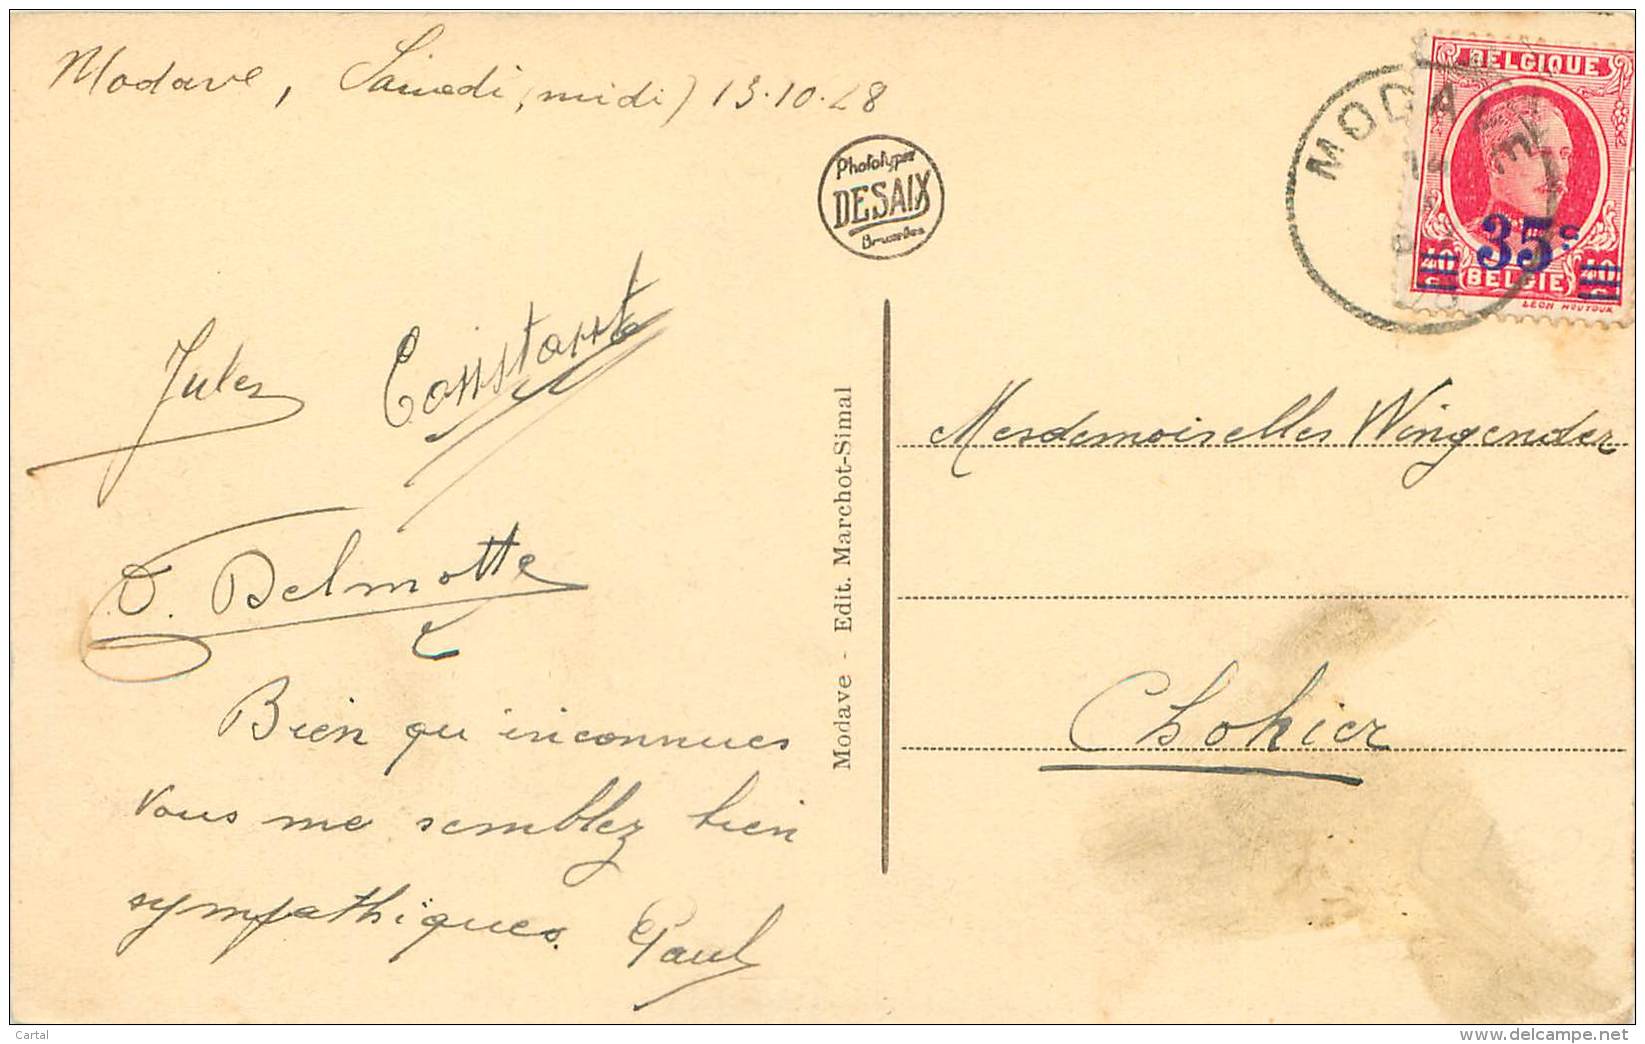 Modave, Samedi (midi) 13.10.28
Phototypie
DESAIX
Bruxelles
BELGIQUE
MODAVE
35c
40 40
c c
BELGIE
LEON HOUYOUX
Jules Constant
O. Delmotte
Bien qu'inconnues
vous me semblez bien
sympathiques. Paul
Modave - Edit. Marchot-Simal
Mesdemoiselles Wingender
Chokier
Cartal
www.delcampe.net